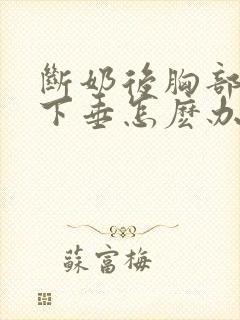 斷奶後胸部
下垂怎麽办
蘇富梅